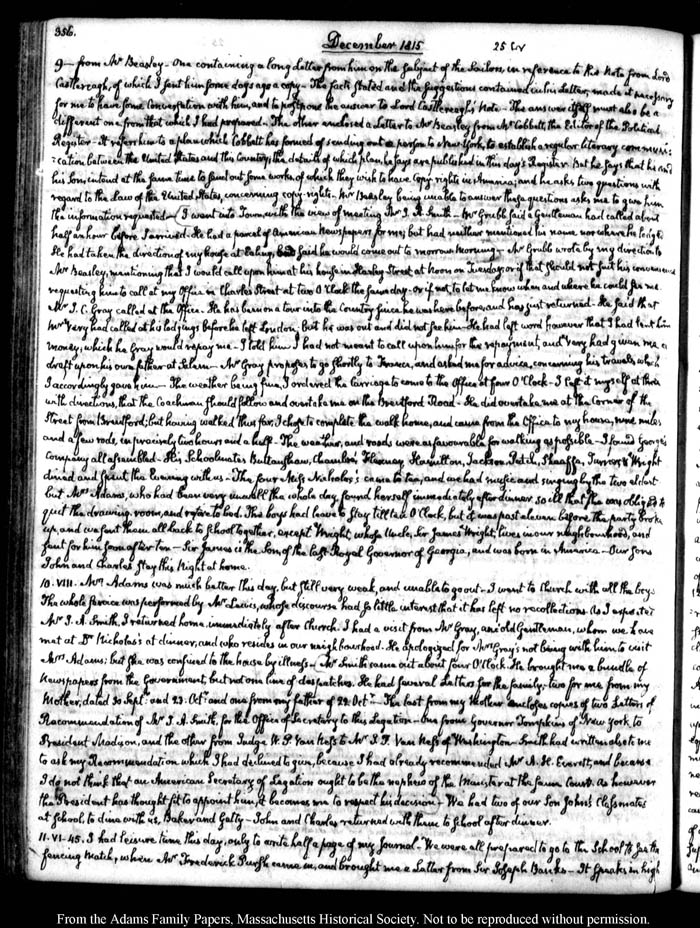 356.
December 1815
9 — from Mr Beasley — One containing a long Letter from him on the subject of the Sailors, in reference to the Note from Lord
Castlereagh, of which I sent him some days ago a copy — The facts stated and the suggestions contained in his Letter, made it necessary
for me to have some Conversation with him, and to postpone the answer to Lord Castlereagh's Note — The answer itself must also be a
different one from that which I had prepared — The other enclosed a Letter to Mr Beasley from Mr Cobbett, the Editor of the Political
Register — It refers him to a plan which Cobbett has formed of sending out a person to New York, to establish a regular literary communi:
:cation between the United States and this Country; the details of which plan, he says are published in this day's Register. But he says that he and
his Son, intend at the same time to send out some works, of which they wish to have copy rights in America; and he asks two questions with
regard to the Law of the United States, concerning copy-rights — Mr Beasley being unable to answer these questions asks me to give him
the information requested — I went into Town, with the view of meeting Mr J. A. Smith — Mr Grubb said a Gentleman had called about
half an hour before I arrived — He had a parcel of American Newspapers for me; but had neither mentioned his name, nor where he lodged
He had taken the direction of my house at Ealing, and said he would come out to morrow Morning — Mr Grubb wrote by my direction to
Mr Beasley, mentioning that I would call upon him at his house in Harley Street at Noon on Tuesday or if that should not suit his convenience
requesting him to call at my Office in Charles Street at two O'Clock the same day — or if not to let me know when and where he could see me.
Mr J. C. Gray called at the Office. He has been on a tour into the Country since he was here before, and has just returned — He said that
Mr Very had called at his lodgings before he left London; but he was out and did not see him — He had left word however that I had lent him
money, which he Gray would repay me — I told him I had not meant to call upon him for the repayment, and Very had given me a
draft upon his own father at Salem — Mr Gray proposes to go shortly to France, and asked me for advice, concerning his travels, which
I accordingly gave him — The weather being fine, I ordered the Carriage to come to the Office at four O'Clock — I left it myself at three
with directions, that the Coachman should follow and overtake me on the Brentford Road — He did overtake me at the Corner of the
Street from Brentford; but having walked thus far, I chose to complete the walk home, and came from the Office to my house, nine miles
and a few rods, in precisely two hours and a half — The weather, and roads were as favourable for walking as possible — I found George's
company all assembled — His Schoolmates Bullanshaw, Chambre, Hamilton, Jackson, Patch, Wright
dined and spent the Evening with us — The four Miss Nicholas's came to tea, and we had music and singing by the two eldest
but Mrs Adams, who had been very unwell the whole day, found herself immediately after dinner so ill that she was obliged to
quit the drawing room, and retire to bed. The boys had leave to stay till ten O'Clock, but it was past eleven before the party broke
up, and we sent them all back to School together, except Wright, whose Uncle, Sir James Wright, lives in our neighbourhood, and
sent for him soon after ten — Sir James is the Son of the last Royal Governor of Georgia, and was born in America — Our Sons
John and Charles stay this Night at home.
10. VIII. Mrs Adams was much better this day, but still very weak, and unable to go out — I went to Church with all the boys
The whole service was performed by Mr Lewis, whose discourse had so little interest that it has left no recollections. As I expected
Mr J. A. Smith, I returned home immediately after Church. I had a visit from Mr Gray, an old Gentleman, whom we have
met at Dr Nicholas's at dinner, and who resides in our neighbourhood. He apologized for Mrs Gray's not being with him to visit
Mrs Adams; but she was confined to the house by illness — Mr Smith came out about four O'Clock. He brought me a bundle of
Newspapers from the Government, but not one line of despatches. He had several Letters for the family: two for me from my
Mother, dated 30 Septr: and 23. Octr: and one from my father of 29. Octr: — The last from my Mother encloses copies of two Letters of
Recommendation of Mr J. A. Smith, for the Office of Secretary to this Legation — One from Governor Tompkins of New York, to
President Madison, and the other from Judge W. P. Van Ness to Mr J. P. Van Ness of Washington — Smith had written also to me
to ask my Recommendation which I had declined to give, because I had already recommended Mr A. H. Everett, and because
I do not think that an American Secretary of Legation ought to be the nephew of the Minister at the same Court. As however
the President has thought fit to appoint him, it becomes me to respect his decision — We had two of our Son John's Classmates
at School to dine with us, Baker and Gatty — John and Charles returned with them to School after dinner.
11. VI. 45. I had leisure time this day, only to write half a page of my Journal. We were all prepared to go to the School to see the
fencing Match, when Mr Frederick Pursh came in, and brought me a Letter from Sir Joseph Banks — It speaks in high
From the Adams Family Papers, Massachusetts Historical Society. Not to be reproduced without permission.